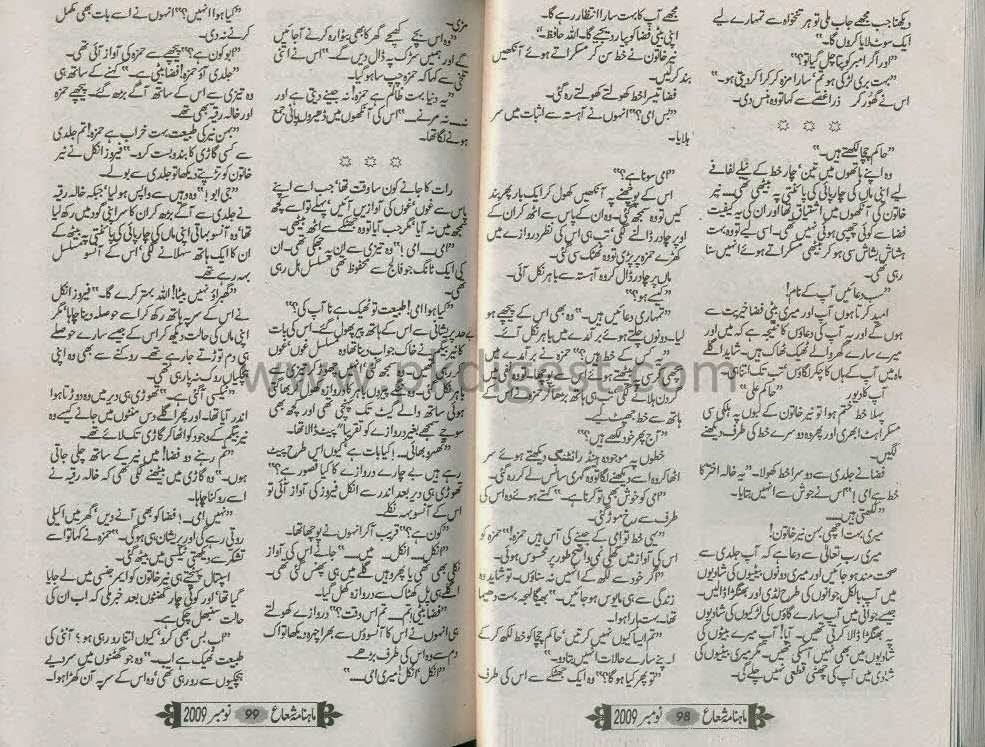 دیکھنا جب مجھے جاب ملی تو ہر تنخواہ سے تمہارے لیے
ایک سوٹ لایا کروں گا۔"
"اور اگر امبر کو پتا چل گیا تو؟"
"بہت بری لڑکی ہو تم' سارا مزہ کرکرا کر دیتی ہو۔"
اس نے گھور کر ذرا غصے سے کہا تو وہ ہنس دی۔
"حاکم چچا لکھتے ہیں۔"
وہ اپنے ہاتھوں میں تین' چار خط کے نیلے لفافے
لیے اپنی ماں کی چارپائی کی پائنتی پہ بیٹھی تھی۔ نیر
خاتون کی آنکھوں میں اشتیاق تھا اور ان کی یہ کیفیت
فضا سے کوئی چھپی ہوئی نہیں تھی۔ اسی لیے تو وہ بہت
ہشاش بشاش سی ہو کر بیٹھی مسکراتے ہوئے انہیں سنا
رہی تھی۔
"سب دعائیں آپ کے نام!
امید کرتا ہوں آپ اور میری بیٹی فضا خیریت سے
ہوں گے اور یہ آپ کی دعاؤں کا نتیجہ ہے کہ میں اور
میرے سارے گھر والے ٹھیک ٹھاک ہیں۔ شاید اگلے
ماہ میں آپ کے ہاں کا چکر لگاؤں' تب تک اتنا ہی۔
آپ کا دیور حاکم علی"
پہلا خط ختم ہوا تو نیر خاتون کے لبوں پہ ہلکی سی
مسکراہٹ ابھری اور پھر وہ دوسرے خط کی طرف دیکھنے
لگیں۔
فضا نے جلدی سے دوسرا خط کھولا۔ "یہ خالہ اختر کا
خط ہے امی!" اس نے جوش سے انہیں بتایا۔
"لکھتی ہیں۔۔۔
میری بہت اچھی بہن نیر خاتون!
میری رب تعالیٰ سے دعا ہے کہ آپ جلدی سے
صحت مند ہو جائیں اور میری دونوں بیٹیوں کی شادیوں
میں آپ بالکل جوانوں کی طرح لڈی اور بھنگڑا ڈالیں۔
جیسے جوانی میں آپ سارے گاؤں کی لڑکیوں کی شادیوں
پہ بھنگڑا ڈالا کرتی تھیں۔ آپا! آپ میرے بیٹوں کی
شادیوں میں بھی نہیں آسکی تھیں۔ مگر میری بیٹیوں کی
شادی میں آپ کی چھٹی قطعی نہیں چلے گی۔
مجھے آپ کا بہت سارا انتظار رہے گا۔
اپنی بیٹی فضا کو پیار دیجیے گا۔ اللہ حافظ۔"
نیر خاتون نے خط سن کر مسکراتے ہوئے آنکھیں
بند کر لیں۔
فضا تیسرا خط کھولتے کھولتے رہ گئی۔
"بس امی؟" انہوں نے آہستہ سے اثبات میں سر
ہلایا۔
"امی سونا ہے؟"
اس کے پوچھنے پہ آنکھیں کھول کر ایک بار پھر بند
کیں تو وہ سمجھ گئی۔ وہ ان کے پاس سے اٹھ کر ان کے
اوپر چادر ڈالنے لگی' تب ہی اس کی نظر دروازے میں
کھڑے حمزہ پر پڑی تو وہ ٹھٹک سی گئی۔
ماں پر چادر ڈال کر وہ آہستہ سے باہر نکل آئی۔
"کیسے ہو؟"
"تمہاری دعائیں ہیں۔" وہ بھی اس کے پیچھے ہو
لیا۔ دونوں چلتے ہوئے برآمدے میں باہر نکل آئے۔
"کس کے خط ہیں؟" حمزہ نے برآمدے میں
رکھی کرسی پہ بیٹھتے ہوئے اس سے پوچھا۔ وہ نفی میں
گردن ہلانے لگی' تب ہی ہاتھ بڑھا کر حمزہ نے اس کے
ہاتھ سے خط جھپٹ لیے۔
"آج پھر خود لکھے ہیں؟"
خطوں پہ موجود ہینڈ رائٹنگ دیکھتے ہوئے سر
اٹھا کر وہ اسے دیکھنے لگا تو وہ گہری سانس لے کر رہ گئی۔
"امی کو خوش بھی تو کرنا ہے۔" کہتے ہوئے وہ اس کی
طرف سے رخ موڑ گئی۔
"یہی خط تو امی کے جینے کی آس ہیں حمزہ!" حمزہ کو
اس کی آواز میں گھلی نمی واضح طور پر محسوس ہوئی۔
"اگر خود سے لکھ کے انہیں نہ سناؤں۔ تو شاید وہ
زندگی سے ہی مایوس ہو جائیں۔" بھیگا لہجہ بہت دھیما
تھا۔ بہت ہارا ہوا۔
"تم ایسا کیوں نہیں کرتیں' حاکم چچا کو خط لکھ کر کے
اپنے سارے حالات انہیں بتا دو۔"
"تو پھر کیا ہو گا؟" وہ ایک جھٹکے سے اس کی طرف
ماہنامہ شعاع 98 نومبر 2009
مڑی۔
"وہ اس بچے کھچے گھر کا بھی بٹوارہ کرنے آ جائیں
گے اور ہمیں سڑک پہ ڈال دیں گے۔" اس نے اتنی
تلخی سے کہا کہ حمزہ چپ سا ہو گیا۔
"یہ دنیا بہت ظالم ہے حمزہ! نہ جینے دیتی ہے اور
نہ۔۔۔ نہ مرنے۔" اس کی آنکھوں میں ڈھیروں پانی جمع
ہونے لگا تھا۔
رات کا جانے کون سا وقت تھا' جب اسے اپنے
پاس سے غوں' غوں کی آوازیں آئیں' پہلے تو اسے کچھ
سمجھ میں نہ آیا' مگر جب آیا تو وہ جھٹکے سے اٹھ بیٹھی۔
"امی۔۔۔ امی!" وہ تیزی سے ان پہ جھکی تھی۔ ان
کی ایک ٹانگ جو فالج سے محفوظ تھی مسلسل ہل رہی
تھی۔
"کیا ہوا امی! طبیعت تو ٹھیک ہے نا آپ کی؟"
بے حد پریشانی سے اس کے ہاتھ پیر پھول گئے۔ اس کی بات
کا نیر بیگم نے خاک جواب دینا تھا وہ مسلسل غوں' غوں
باہر نکل گئی۔
ہوئی ساتھ والے گیٹ تک پہنچی تھی اور کچھ بھی
سوچے سمجھے بغیر دروازے کو تقریباً پیٹ ڈالا تھا۔
"ٹھہرو بھائی۔۔۔! کیا بات ہے کیوں اس طرح پیٹ
رہے ہیں بے چارے دروازے کا کیا قصور ہے؟"
تھوڑی ہی دیر بعد اندر سے انکل فیروز کی آواز آئی تو
اس کے آنسو بہہ نکلے۔
"کون ہے؟" قریب آ کر انہوں نے پوچھا تھا۔
"انکل۔۔۔ انکل۔۔۔ میں۔۔۔" جانے اس کی آواز
نکلی بھی تھی یا پھر وہیں گلے میں ہی پھنس گئی تھی۔
اگلے ہی پل کھٹاک سے دروازہ کھل گیا۔
"فضا بیٹی تم۔۔۔ تم اس وقت؟" دروازے کھولتے
ہی انہوں نے اس کا آنسوؤں سے بھرا چہرہ دیکھا تو ایک
دم سے وہ اس کی طرف بڑھے۔
"انکل' انکل! میری امی۔۔۔"
"کیا ہوا انہیں؟" انہوں نے اسے بات بھی مکمل
کرنے نہ دی۔
"ابو کون ہے؟" پیچھے سے حمزہ کی آواز آئی تھی۔
"جلدی آؤ حمزہ! فضا بیٹی ہے۔" کہنے کے ساتھ ہی
وہ تیزی سے اس کے ساتھ آگے بڑھ گئے۔ پیچھے حمزہ
اور خالہ رقیہ بھی تھے۔
"بہن نیر کی طبیعت بہت خراب ہے حمزہ! تم جلدی
سے کسی گاڑی کا بندوبست کرو۔" فیروز انکل نے نیر
خاتون کو تڑپتے دیکھا تو جلدی سے بولے۔
"جی ابو!" وہ وہیں سے واپس ہو لیا' جبکہ خالہ رقیہ
نے جلدی سے آگے بڑھ کر ان کا سر اپنی گود میں رکھ لیا
تھا' وہ آنسو بہاتی اپنی ماں کی چارپائی کی پائنتی بیٹھ کے
ان کا ایک ہاتھ سہلانے لگی' اس کے آنسو مسلسل
بہہ رہے تھے۔
"گھبراؤ نہیں بیٹا! اللہ بہتر کرے گا۔" فیروز انکل
نے اس کے سر پہ ہاتھ رکھ کر اسے حوصلہ دینا چاہا' مگر
اپنی ماں کی حالت دیکھ کر اس کے جیسے سارے حوصلے
ہی دم توڑتے جا رہے تھے۔ روکنے سے بھی وہ اپنی
ہچکیاں روک نہ پا رہی تھی۔
"ٹیکسی آگئی ہے۔" تھوڑی ہی دیر میں وہ دوڑتا ہوا
اندر آیا تھا۔ اور پھر اگلے دس منٹوں میں جانے کیسے وہ
نیر بیگم کے وجود کو اٹھا کر گاڑی تک لائے تھے۔
"تم رہنے دو فضا! میں نیر کے ساتھ چلی جاتی
ہوں۔" وہ گاڑی میں بیٹھنے لگی تھی کہ خالہ رقیہ نے
اسے روکنا چاہا۔
"نہیں امی۔۔۔! فضا کو بھی آنے دیں' گھر میں اکیلی
روتی رہے گی اور پریشان ہی ہو گی۔" حمزہ نے کہا تو اسے
تشکر سے دیکھتی ٹیکسی میں بیٹھ گئی۔
اسپتال پہنچتے ہی نیر خاتون کو ایمرجنسی میں لے جایا
گیا تھا' اور کوئی چار گھنٹوں بعد خبر ملی کہ اب ان کی
حالت سنبھل چکی ہے۔
"اب بس بھی کرو' کیوں اتنا رو رہی ہو؟ آنٹی کی
طبیعت ٹھیک ہے اب۔" وہ جو گھٹنوں میں سر دیے
ہچکیوں سے رو رہی تھی' وہ اس کے سر پہ آن کھڑا ہوا۔
ماہنامہ شعاع 99 نومبر 2009
www.pkdigest.com